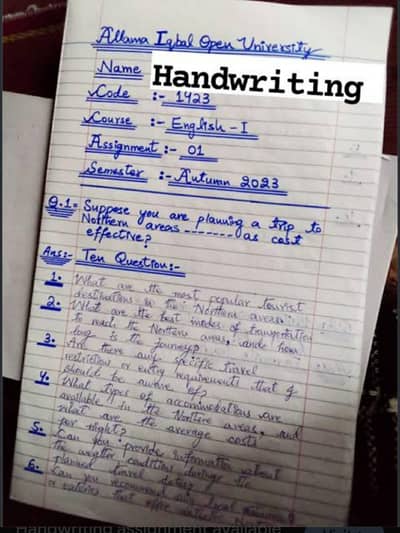 Allama Iqbal Open University
Name Handwriting
Code :- 1423
Course :- English - I
Assignment :- 01
Semester :- Autumn 2023
Q.1= Suppose you are planning a trip to
Northern areas -------- as cost
effective?
Ans:- Ten Question:-
1. What are the most popular tourist
destinations in the Northern areas?
2. What are the best modes of transportation
to reach the Northern areas, and how
long is the journey?
3. Are there any specific travel
restriction or entry requirements that I
should be aware of?
4. What types of accommodations are
available in the Northern areas, and
what are the average costs
per night?
5. Can you provide information about
the weather conditions during the
planned travel dates?
6. Can you recommend any local
or eateries that offer
Handwriting assignment available